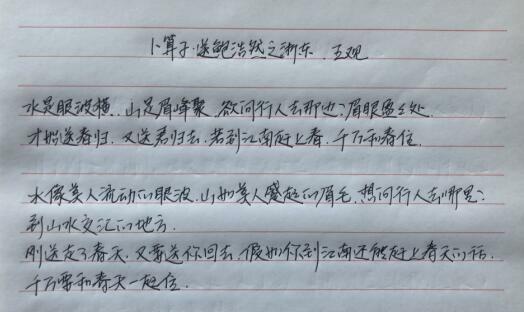 卜算子·送鲍浩然之浙东 王观
水是眼波横,山是眉峰聚,欲问行人去那边?眉眼盈盈处.
才始送春归,又送君归去,若到江南赶上春,千万和春住.
水像美人流动的眼波,山如美人蹙起的眉毛,想问行人去哪里?
到山水交汇的地方.
刚送走了春天,又要送你回去,假如你到江南还能赶上春天的话,
千万要和春天一起住.